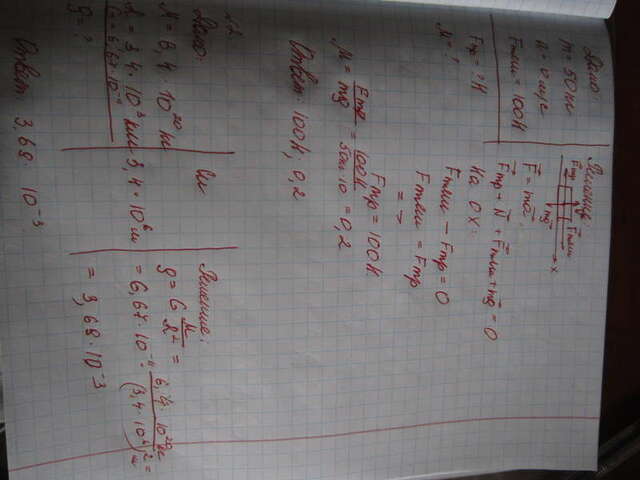 Дано:
m = 50 кг
a = 0 м/с
Fтяги = 100 Н
Fтр = ? Н
μ = ?
Решение:
Fтр
N
Fтяги
mg
x
F = ma
Fтр + N + Fтяги + mg = 0
На OX:
Fтяги − Fтр = 0
Fтяги = Fтр
=>
Fтр = 100 Н
μ = Fтр / mg = 100 Н / 50 кг · 10 = 0,2
Ответ: 100 Н; 0,2
№2
Дано:
M = 6,4 · 10²⁰ кг
R = 3,4 · 10³ км
G = 6,67 · 10⁻¹¹
g = ?
Си
3,4 · 10⁶ м
Решение:
g = G M / R² =
= 6,67 · 10⁻¹¹ · 6,4 · 10²⁰ кг / (3,4 · 10⁶)² м =
= 3,68 · 10⁻³
Ответ: 3,68 · 10⁻³